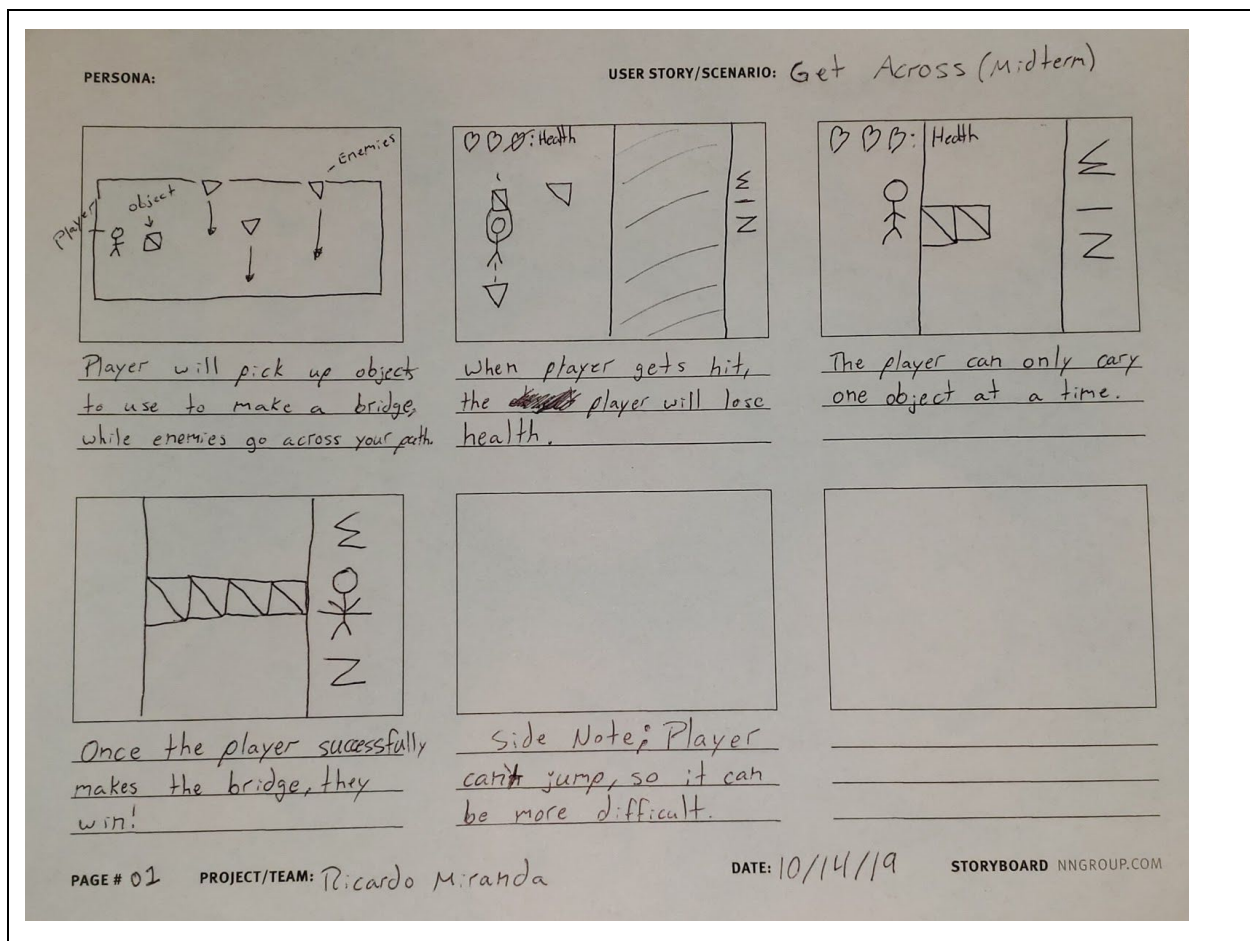 PERSONA:
USER STORY/SCENARIO: Get Across (Midterm)
Enemies
object
Player
Player will pick up object
to use to make a bridge,
while enemies go across your path.
: Health
WIN
When player gets hit,
the player will lose
health.
: Health
WIN
The player can only cary
one object at a time.
W
N
Once the player successfully
makes the bridge, they
win!
Side Note: Player
can't jump, so it can
be more difficult.
PAGE # 01
PROJECT/TEAM: Ricardo Miranda
DATE: 10/14/19
STORYBOARD NNGROUP.COM